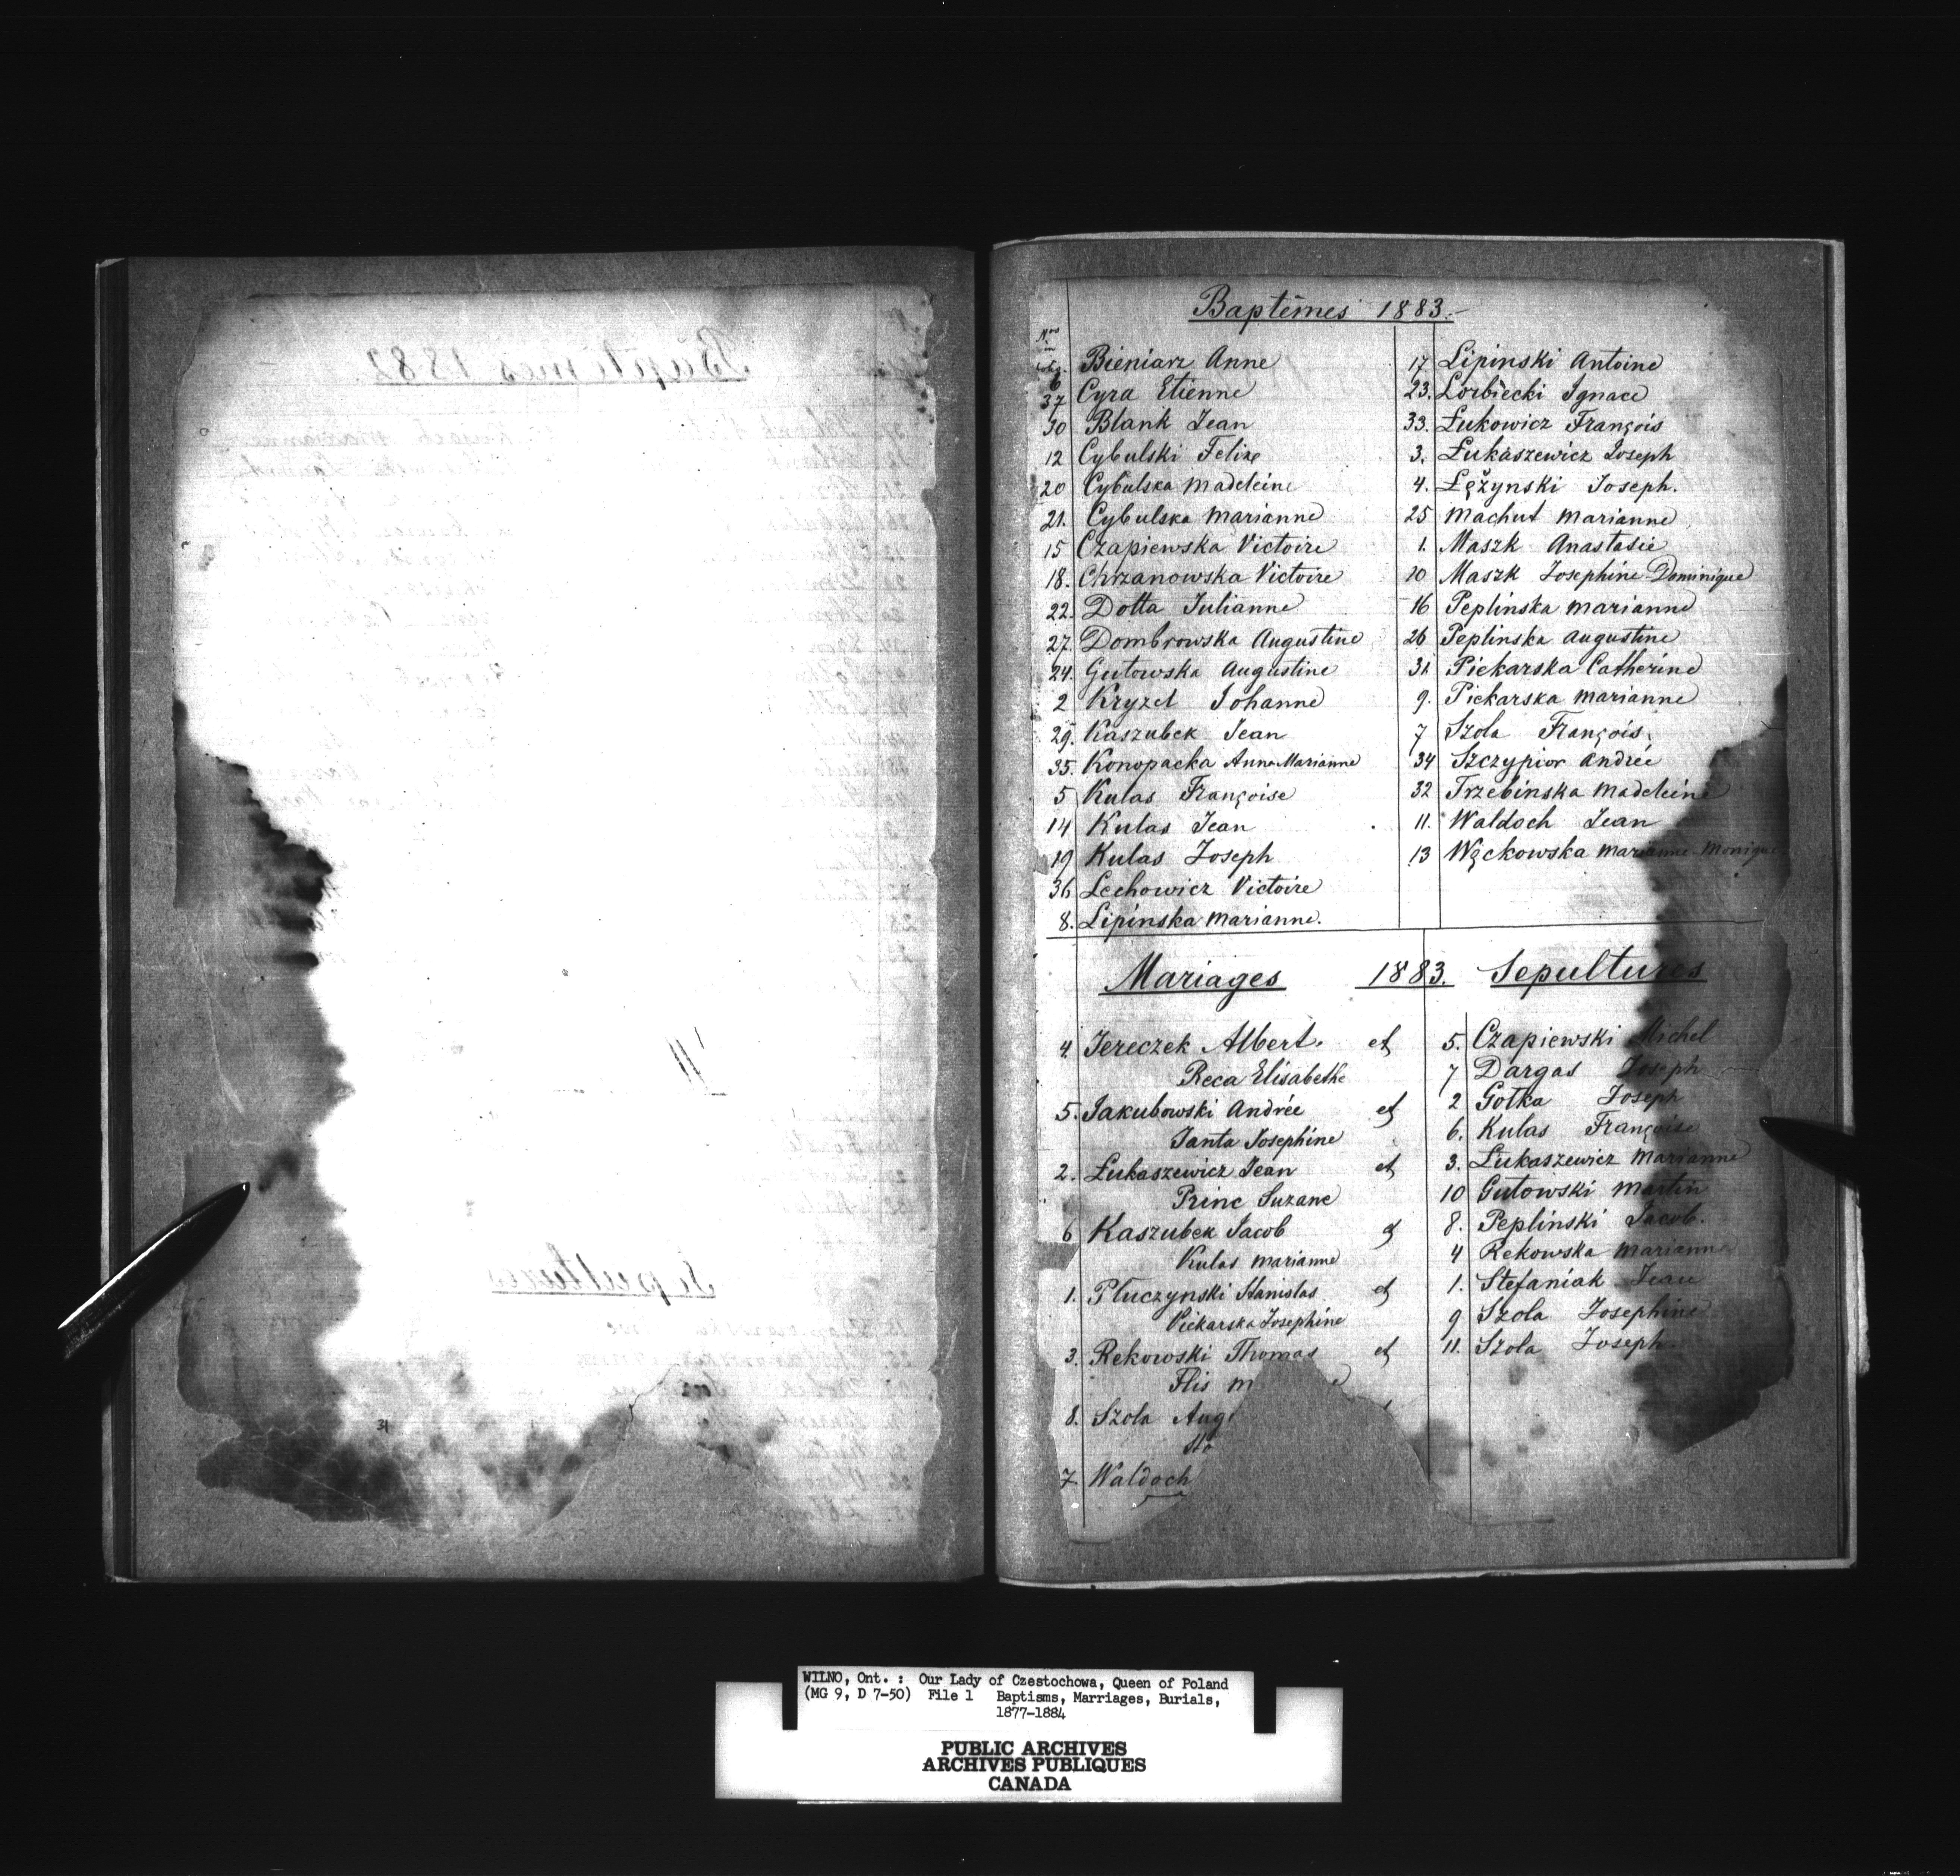 Baptêmes 1883.
Nos
6 Bieniarz Anne
37 Cyra Etienne
30 Blank Jean
12 Cybulski Felix
20 Cybulska Madeleine
21. Cybulska Marianne
15 Czapiewska Victoire
18. Chrzanowska Victoire
22. Dotta Julianne
27. Dombrowska Augustine
24. Gutowska Augustine
2 Kryzel Johanne
29. Kaszubek Jean
35. Konopacka Anna Marianne
5 Kulas Françoise
14 Kulas Jean
19 Kulas Joseph
36 Lechowicz Victoire
8. Lipinska Marianne.
17 Lipinski Antoine
23. Lorbiecki Ignace
33. Łukowicz François
3. Łukaszewicz Joseph
4. Łężynski Joseph.
25 Machut Marianne
1. Maszk Anastasie
10 Maszk Josephine-Dominique
16 Peplinska Marianne
26 Peplinska Augustine
31 Piekarska Catherine
9. Piekarska Marianne
7 Szola François
34 Szczypior Andrée
32 Trzebinska Madeleine
11. Waldoch Jean
13 Węckowska Marianne Monique
Mariages 1883.
4. Jereczek Albert. et
Reca Elisabethe
5. Jakubowski Andrée et
Janta Josephine
2. Łukaszewicz Jean et
Princ Suzane
6 Kaszubek Jacob et
Kulas Marianne
1. Płuczynski Stanislas et
Piekarska Josephine
3. Rekowski Thomas et
Flis M
8. Szola Aug
7 Waldoch
Sepultures
5. Czapiewski Michel
7 Dargas Joseph
2 Gotka Joseph
6. Kulas Françoise
3. Łukaszewicz Marianne
10 Gutowski Martin
8. Peplinski Jacob.
4 Rekowska Marianne
1. Stefaniak Jean
9 Szola Josephine
11. Szola Joseph.
Baptêmes 1882
Sepultures
31
WILNO, Ont. : Our Lady of Czestochowa, Queen of Poland
(MG 9, D 7-50) File 1 Baptisms, Marriages, Burials,
1877-1884
PUBLIC ARCHIVES
ARCHIVES PUBLIQUES
CANADA